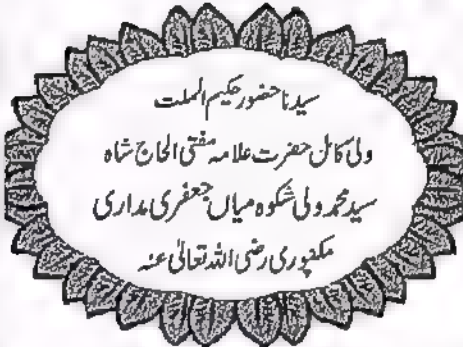 سیدنا حضور حکیم الملت
ولی کامل حضرت علامہ مفتی الحاج شاہ
سید محمد ولی شکوہ میاں جعفری مداری
مکنپوری رضی اللہ تعالیٰ عنہ